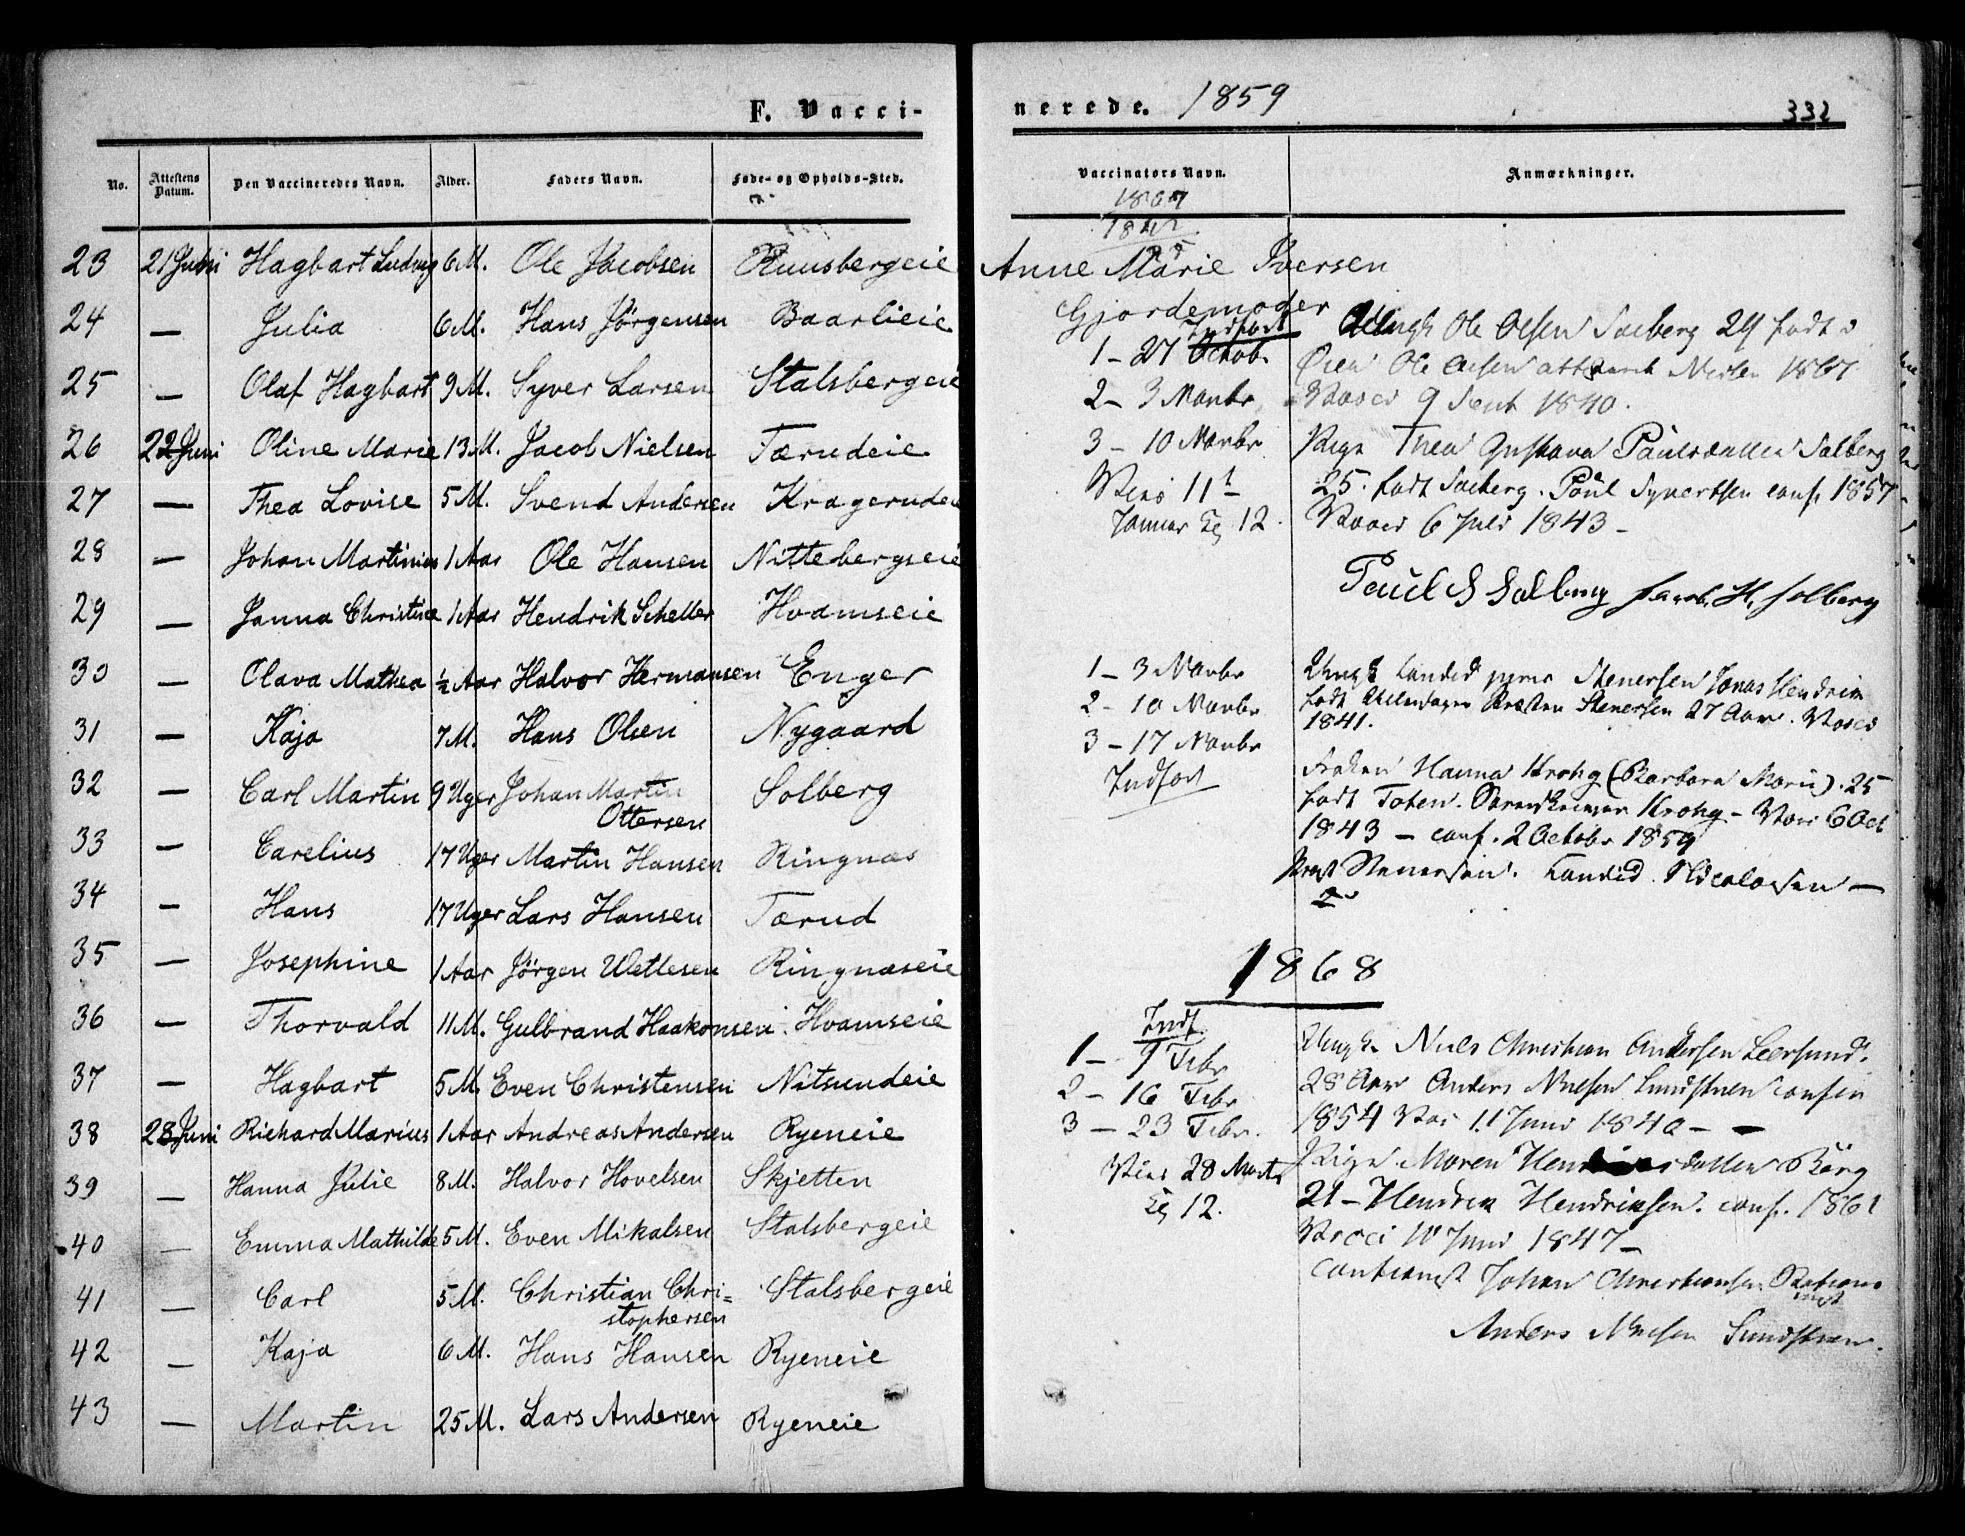 F. Vacci-
No. Attestens Datum. Den Vaccineredes Navn. Alder. Faders Navn. Føde- og Opholds-Sted.
23 21 Juni Hagbart Ludvig 6 M. Ole Jacobsen Ruusbergeie
24 — Julia 6 M. Hans Jörgensen Baarlieie
25 — Olaf Hagbart 9 M. Syver Larsen Stalsbergeie
26 22 Juni Oline Marie 13 M. Jacob Nielsen Tærudeie
27 — Thea Lovise 5 M. Svend Andersen Kragerudeie
28 — Johan Martinius 1 Aar Ole Hansen Nittebergseie
29 — Janna Christine 1 Aar Hendrik Scheller Hvamseie
30 — Olava Mathea ½ Aar Halvor Hermansen Enger
31 — Kaja 7 M. Hans Olsen Nygaard
32 — Carl Martin 9 Uger Johan Martin Solberg
Ottersen
33 — Carelius 17 Uger Martin Hansen Ringnæs
34 — Hans 17 Uger Lars Hansen Tærud
35 — Josephine 1 Aar Jörgen Wetlesen Ringnæseie
36 — Thorvald 11 M. Gulbrand Haakonsen Hvamseie
37 — Hagbart 5 M. Even Christensen Nitsundeie
38 28 Juni Richard Marius 1 Aar Andreas Andersen Ryeneie
39 — Hanna Julie 8 M. Halvor Hovelsen Skjetten
40 — Emma Mathilde 5 M. Even Mikalsen Stalsbergeie
41 — Carl 5 M. Christian Chri=
stophersen Stalsbergeie
42 — Kaja 6 M. Hans Hansen Ryeneie
43 — Martin 25 M. Lars Andersen Ryeneie
nerede. 1859
332
Vaccinators Navn. Anmærkninger.
1867
Anne Marie Iversen
Gjordemoder
Indført
1 - 27 Octobr
2 - 3 Novbr
3 - 10 Novbr
11
Januar 12.
Ungk Ole Olsen Solberg 29 født
Ole Olsen 1867
9 Sept 1840.
Pige Thea Gustava Paulsdatter Solberg
25. født Solberg. Paul Syvertsen conf. 1857
6 Juli 1843 -
Paul S Solberg Jacob H. Solberg
1 - 3 Novbr
2 - 10 Novbr
3 - 17 Novbr
Indført
Ungk Candid Stenersen Jonas Hendrik
født Stenersen 27 Aar.
1841.
Frøken Hanna Krohg (Barbara Marie). 25
født Toten. Krohg - 6 Oct
1843 - conf. 2 Octobr 1859
Stenersen. Candid. Nicolaisen —
1868
Indf.
1 - 9 Febr
2 - 16 Febr
3 - 23 Febr.
28 Marts
12.
Ungk. Niels Christian Andersen Leersund.
28 Aar Anders Nielsen Sundstuen
1854 Vac 11 Juni 1840 -
Pige Maren datter Berg
21 - Hendrik Hendriksen. conf. 1861
10 Juni 1847 -
Johan Christiansen
Anders Nielsen Sundstuen.